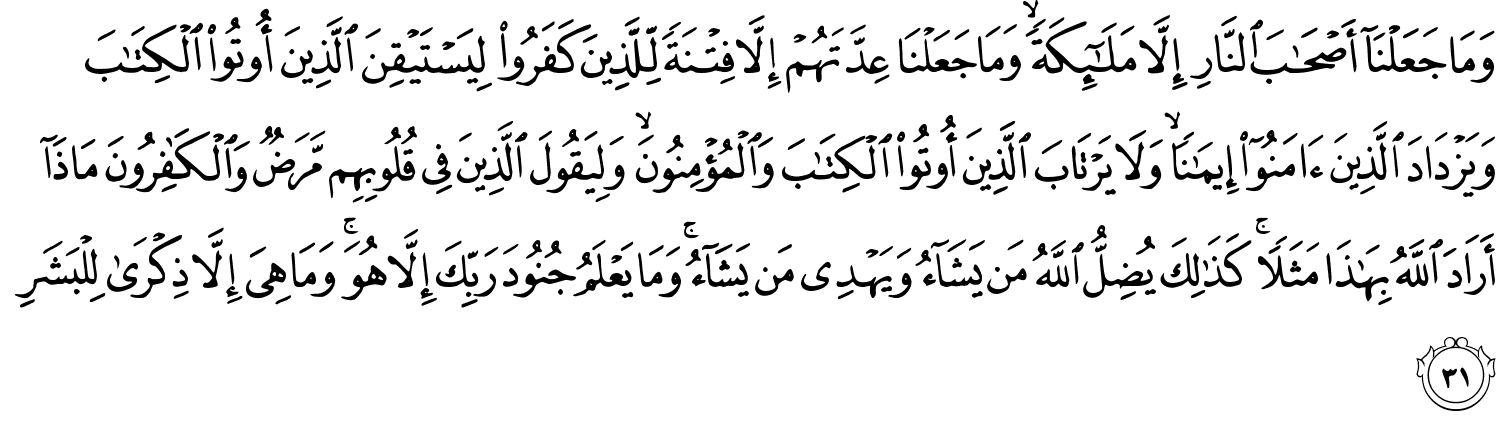 وَمَا جَعَلْنَآ أَصْحَٰبَ ٱلنَّارِ إِلَّا مَلَٰٓئِكَةً ۙ وَمَا جَعَلْنَا عِدَّتَهُمْ إِلَّا فِتْنَةً لِّلَّذِينَ كَفَرُوا۟ لِيَسْتَيْقِنَ ٱلَّذِينَ أُوتُوا۟ ٱلْكِتَٰبَ
وَيَزْدَادَ ٱلَّذِينَ ءَامَنُوٓا۟ إِيمَٰنًا ۙ وَلَا يَرْتَابَ ٱلَّذِينَ أُوتُوا۟ ٱلْكِتَٰبَ وَٱلْمُؤْمِنُونَ ۙ وَلِيَقُولَ ٱلَّذِينَ فِى قُلُوبِهِم مَّرَضٌ وَٱلْكَٰفِرُونَ مَاذَآ
أَرَادَ ٱللَّهُ بِهَٰذَا مَثَلًا ۚ كَذَٰلِكَ يُضِلُّ ٱللَّهُ مَن يَشَآءُ وَيَهْدِى مَن يَشَآءُ ۚ وَمَا يَعْلَمُ جُنُودَ رَبِّكَ إِلَّا هُوَ ۚ وَمَا هِىَ إِلَّا ذِكْرَىٰ لِلْبَشَرِ
٣١